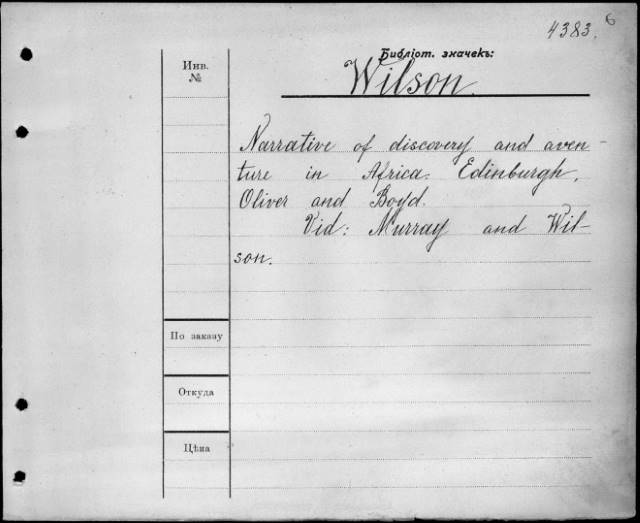 4383. 6
Библіот. значекъ:
Wilson.
Инв.
№
Narrative of discovery and aven-
ture in Africa. Edinburgh,
Oliver and Boyd.
Vid: Murray and Wil-
son.
По заказу
Откуда
Цѣна